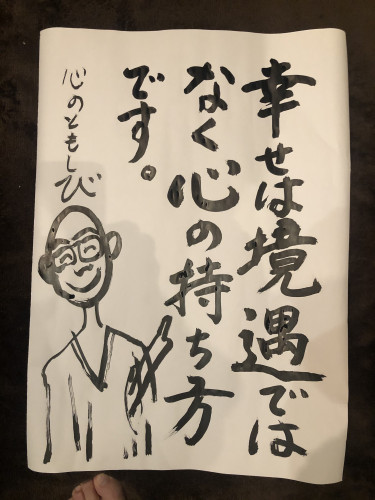 幸せは境遇では
なく心の持ち方
です。
心のともしび